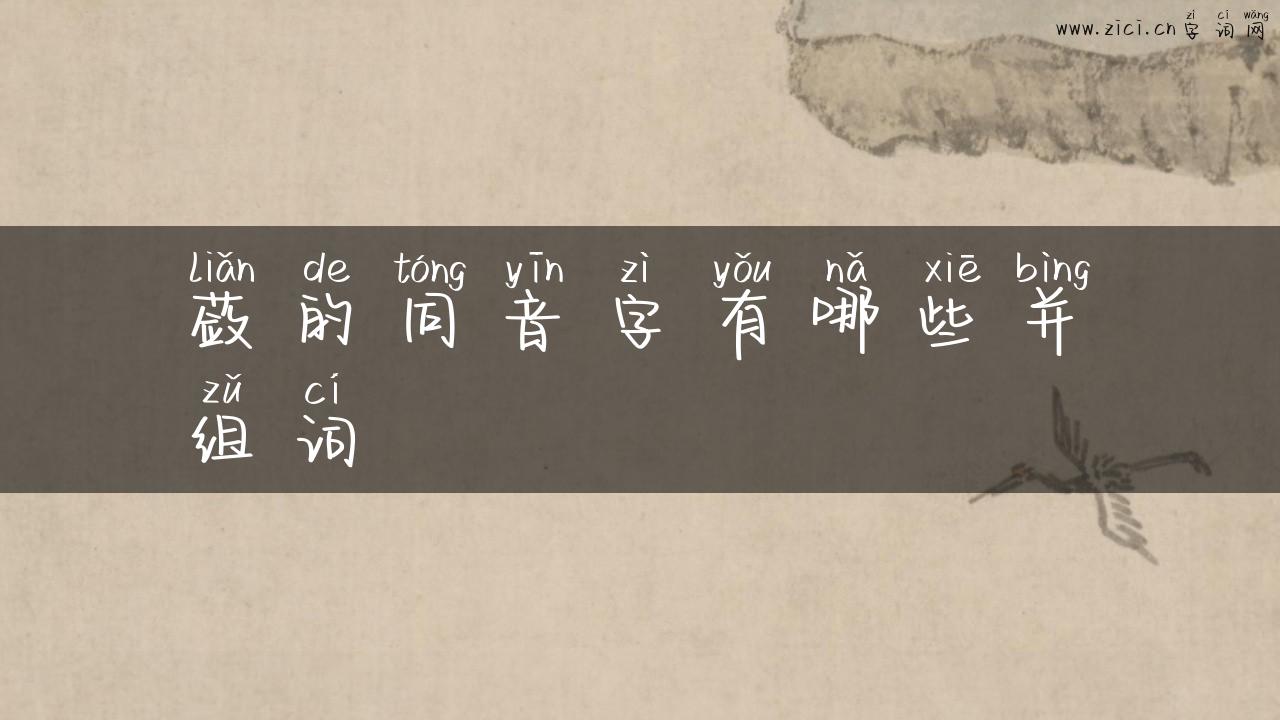 zì cí wǎng
www.zici.cn 字 词 网
liǎn de tóng yīn zì yǒu nǎ xiē bìng
蔹 的 同 音 字 有 哪 些 并
zǔ cí
组 词